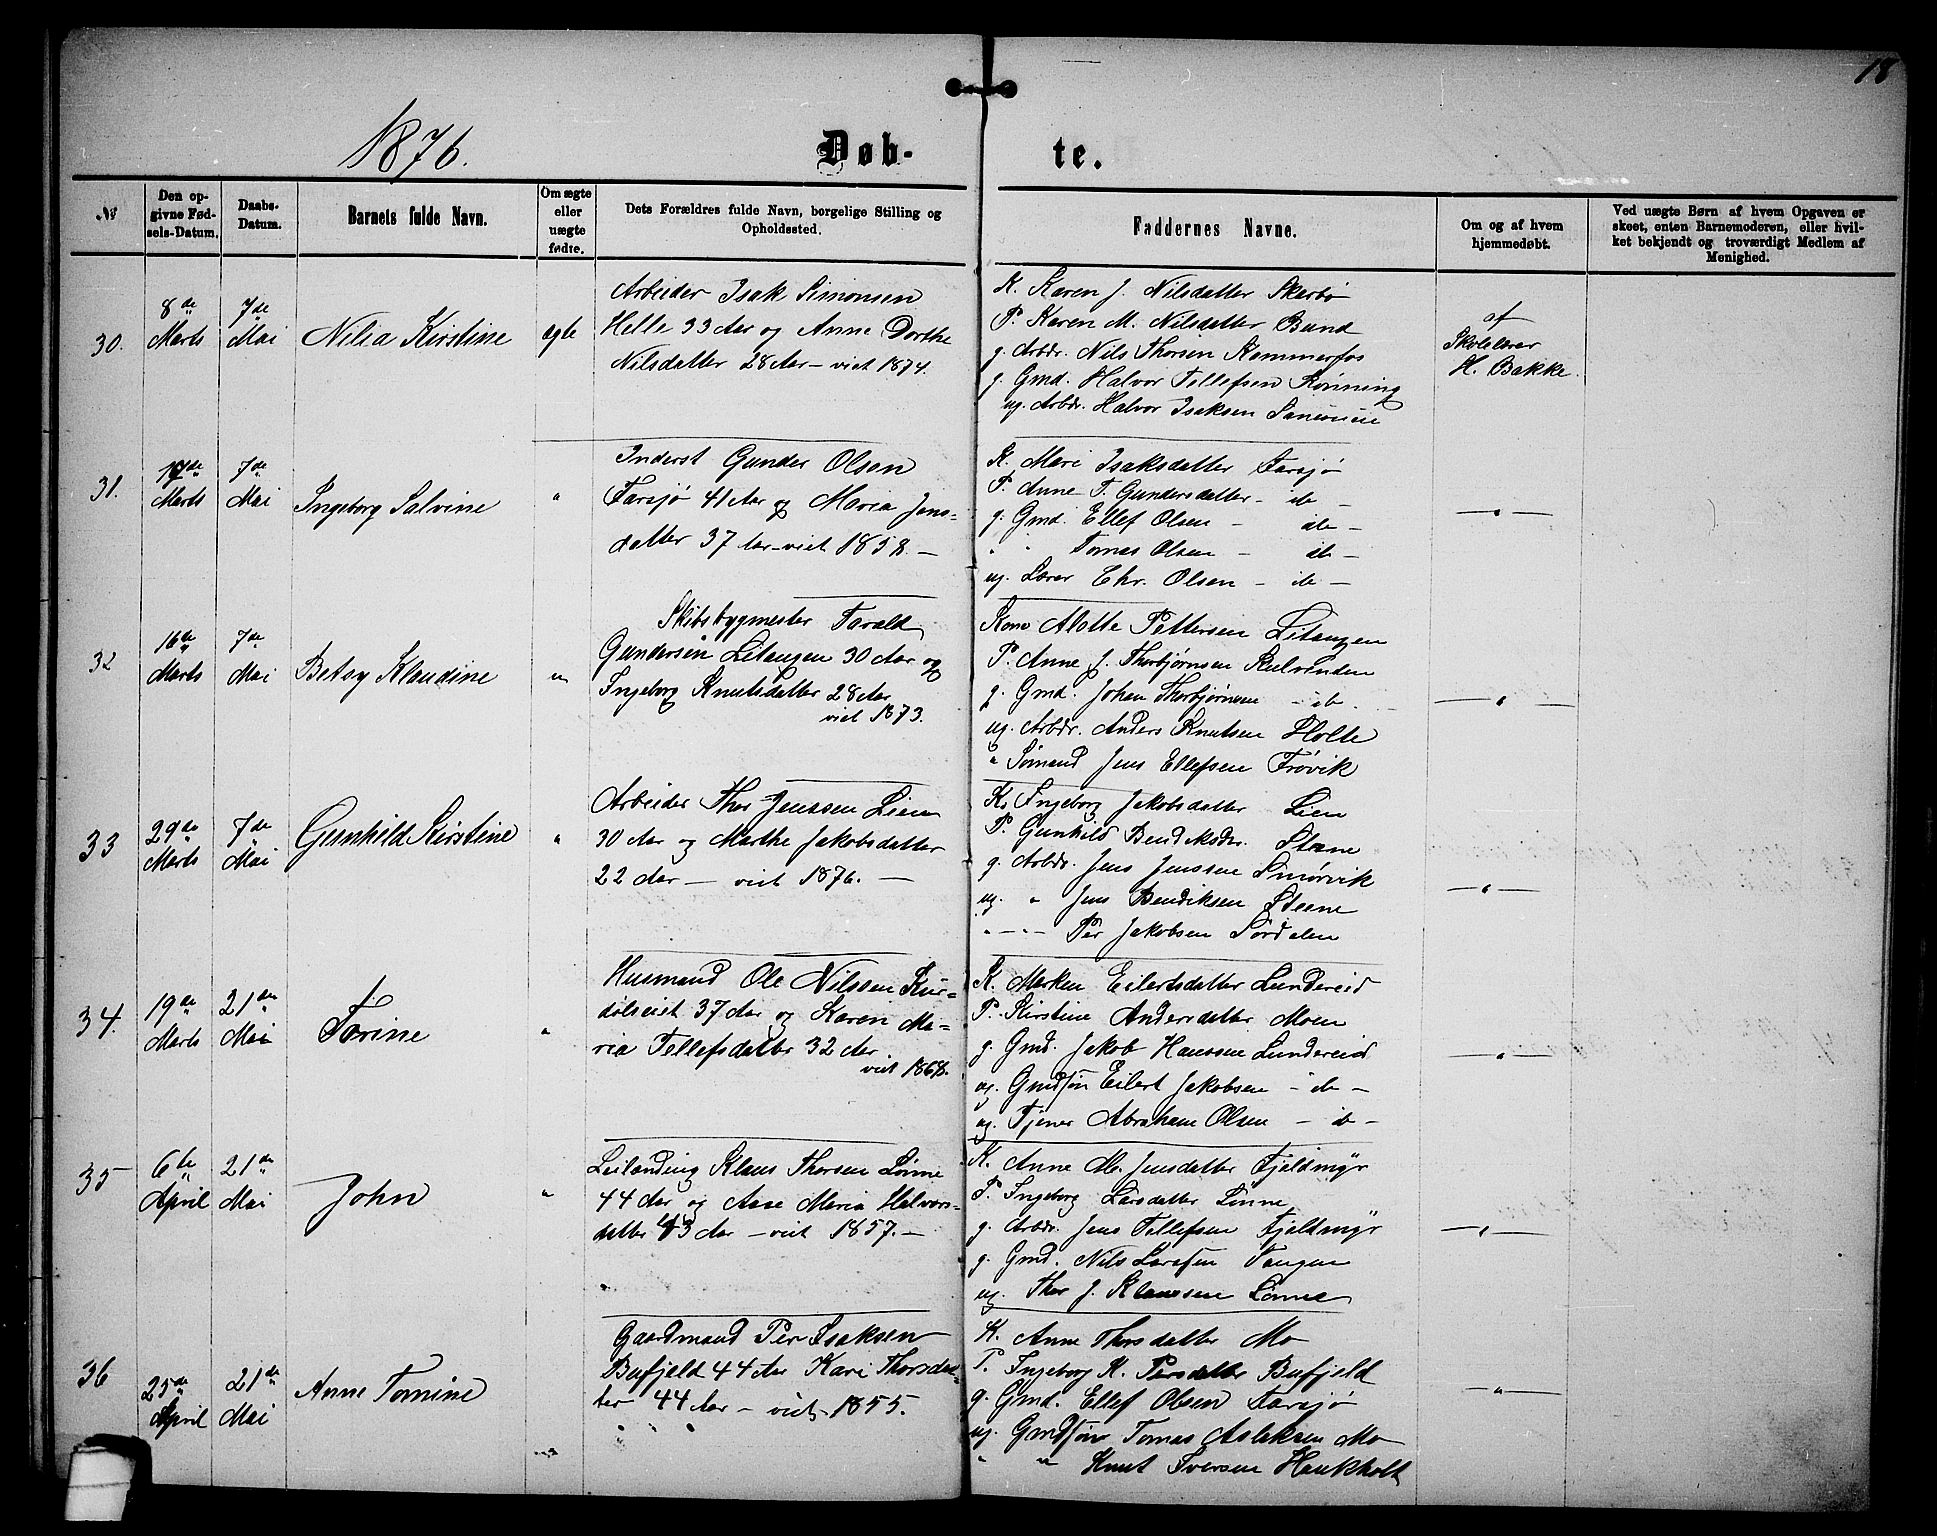 18
1876.
Døb-
te.
№
Den op-
givne Fød-
sels-Datum.
Daabs-
Datum.
Barnets fulde Navn.
Om ægte
eller
uægte
fødte.
Dets Forældres fulde Navn, borgelige Stilling og
Opholdssted.
Faddernes Navne.
Om og af hvem
hjemmedøbt.
Ved uægte Børn af hvem Opgaven er
skeet, enten Barnemoderen, eller hvil-
ket bekjendt og troværdigt Medlem af
Menighed.
30.
8de
Marts
7de
Mai
Nilia Kirstine
ægte
Arbeider Isak Simonsen
Helle 33 Aar og Anne Dorthe
Nilsdatter 28 Aar - viet 1874.
K. Karen J. Nilsdatter Skarbø
P. Karen M. Nilsdatter Bund
g. Arbdr. Nils Thorsen Kammerfos
g. Gmd. Halvor Tellefsen Rønning
ug. Arbdr. Halvor Isaksen
af
Skolelærer
H. Bakke.
31.
17de
Marts
7de
Mai
Ingeborg Salvine
"
Inderst Gunder Olsen
Farsjø 41 Aar og Maria Jens-
datter 37 Aar - viet 1858. -
K. Mari Isaksdatter Farsjø
P. Anne T. Gundersdatter - ib -
g. Gmd. Ellef Olsen - ib -
" " Tomas Olsen - ib -
ug. Lærer Chr. Olsen - ib -
- " -
32
16de
Marts
7de
Mai
Betsy Klaudine
"
Skibsbygmester Tarald
Gundersen Litangen 30 Aar og
Ingeborg Knutsdatter 28 Aar
viet 1873.
Kone Alotte Pettersen Litangen
P. Anne J. Thorbjørnsen
g. Gmd. Johan Thorbjørnsen - ib.
ug. Arbdr. Anders Knutsen Holte
" Sømand Jens Ellefsen Frøvik
- " -
33
29de
Marts
7de
Mai
Gunhild Kirstine
"
Arbeider Thor Jenssen Lien
30 Aar og Marthe Jakobsdatter
22 Aar - viet 1876. -
K. Ingeborg Jakobsdatter Lien
P. Gunhild Bendiksdr. Steane
g. Arbdr. Jens Jenssen Smørvik
ug. " Jens Bendiksen Steane
" - " - Per Jakobsen Sørdalen
- " -
34.
19de
Marts
21de
Mai
Torine
"
Husmand Ole Nilssen Kur-
dølseiet 37 Aar og Karen Ma-
ria Tellefsdatter 32 Aar.
viet 1868.
K. Marken Eilertsdatter Lundereid
P. Kirstine Andersdatter Moen
g. Gmd. Jakob Hanssen Lundereid
ug. Gmdsøn Eilert Jakobsen - ib -
ug. Tjener Abraham Olsen - ib -
- " -
35
6te
April
21de
Mai
John
"
Leilænding Klaus Thorsen Lønne
44 Aar og Aase Maria Halvors-
datter 43 Aar - viet 1857. -
K. Anne M. Jensdatter Fjeldmyr
P. Ingeborg Larsdatter Lønne
g. Arbdr. Jens Tellefsen Fjeldmyr
g. Gmd. Nils Larssen Tangen
ug. Thor J. Klaussen Lønne
- " -
36
25de
April
21de
Mai
Anne Tomine
"
Gaardmand Per Isaksen
Bufjeld 44 Aar Kari Thorsdat-
ter 44 Aar - viet 1855.
K. Anne Thorsdatter Mo
P. Ingeborg K. Persdatter Bufjeld
g. Gmd. Ellef Olsen Farsjø
ug. Gmdsøn Tomas Aslaksen Mo
" " Knut Iversen Haukholt
- " -